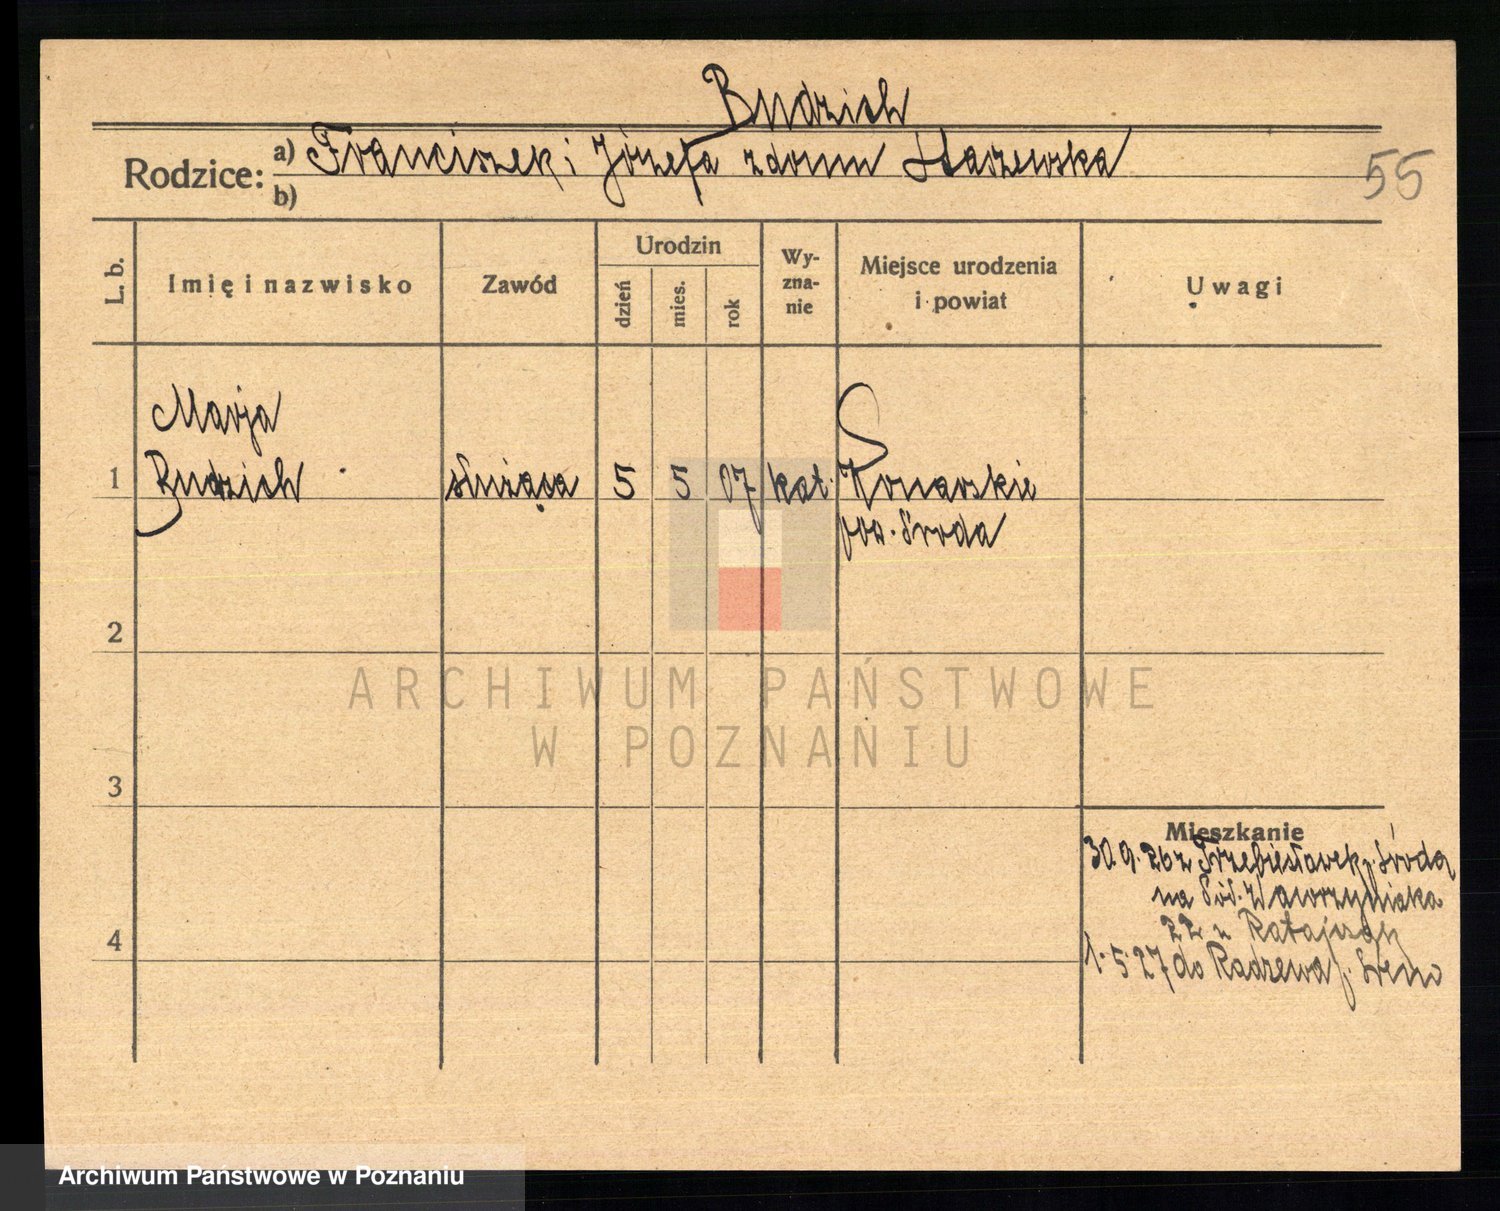 Budzich
Rodzice: a) Franciszek i Józefa z domu Staszewska
b)
55
L. b.
Imię i nazwisko
Zawód
Urodzin
dzień
mies.
rok
Wy-
zna-
nie
Miejsce urodzenia
i powiat
Uwagi
Marja
1 Budzich służąca 5 5 07 kat. Konarskie
pow. Środa
2
3
4
ARCHIWUM PAŃSTWOWE
W POZNANIU
Mieszkanie
30.9.26 z Trzebiesławek p. Środa
na Św. Wawrzyniaka
22 u Ratajczak
1.5.27 do Radzewa p. Śrem
Archiwum Państwowe w Poznaniu